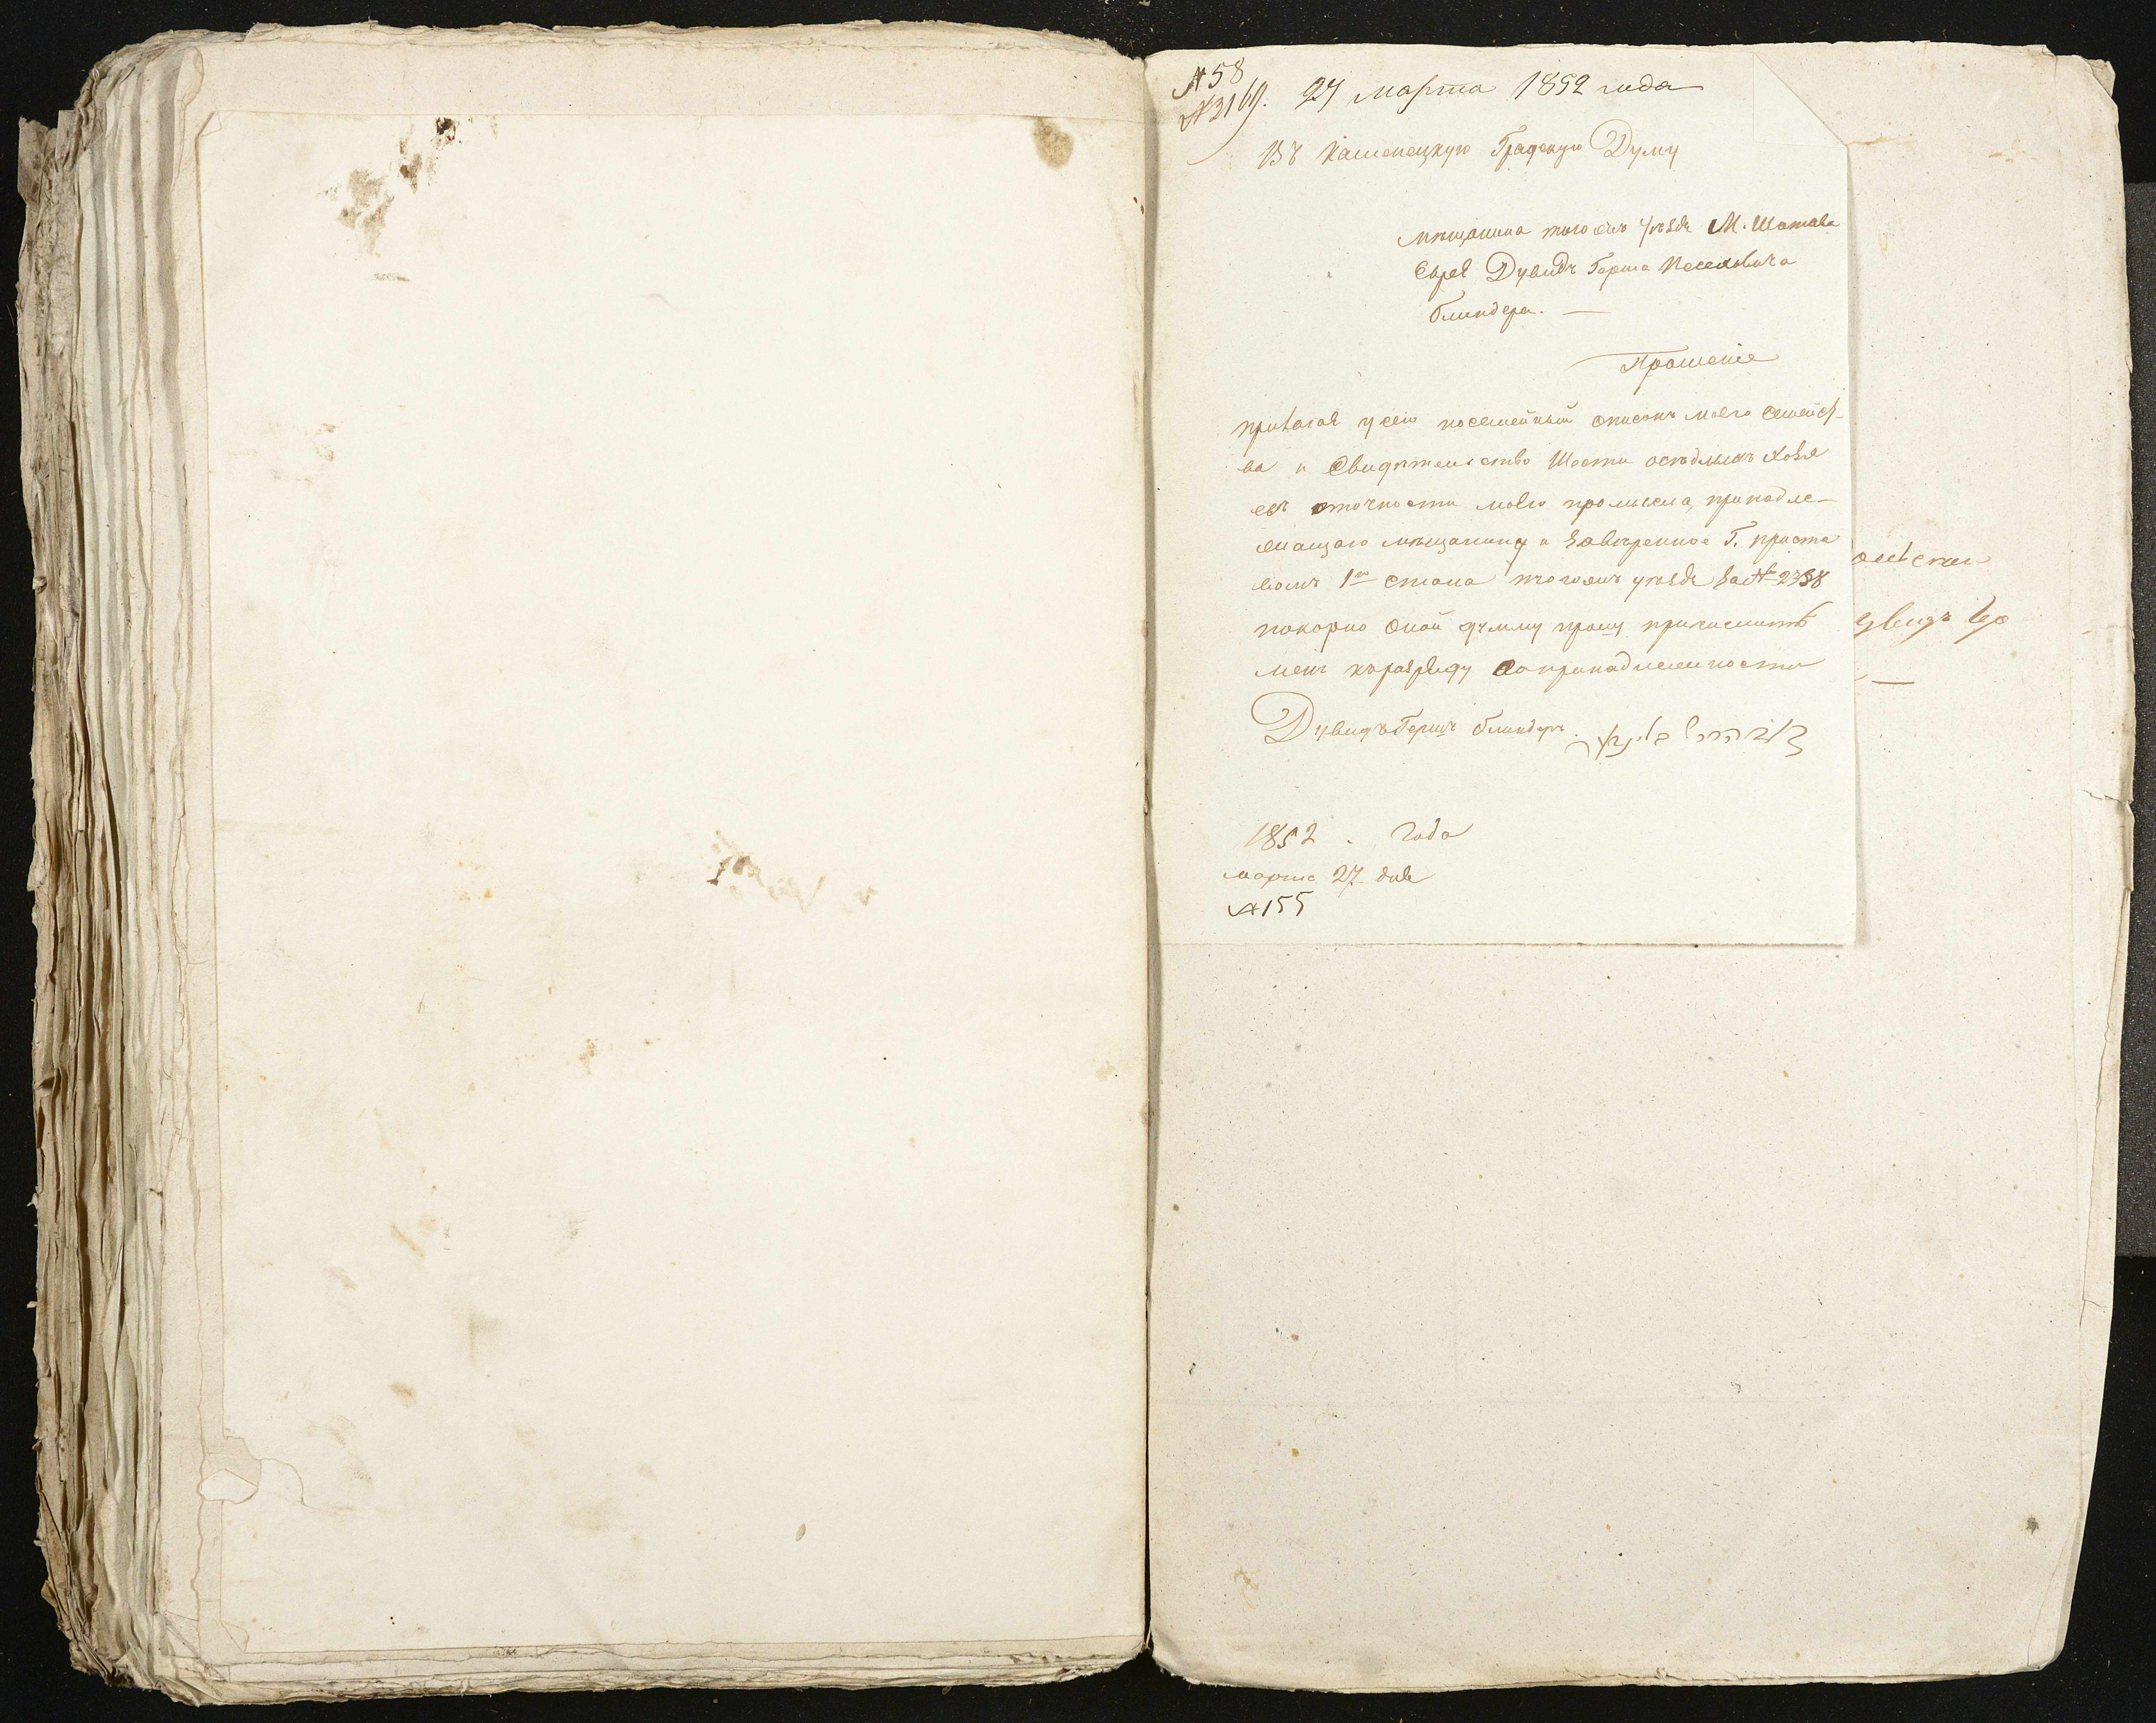 № 58
№ 3169. 27 марта 1852 года
Въ Каменецкую Градскую Думу
мѣщанина тогожъ уѣзда М. Шатава
Еврея Дувидъ Герша Песеховича
блиндера. —
Прошеніе
прилагая у сего посемейный списокъ моего семейст-
ва и Свидѣтельство Шести осѣдлыхъ хозя
евъ оточности моего промысла, принадле-
жащаго мѣщанину и завѣренное Г. приста
вомъ 1го стана тогожъ уѣзда за № 2398
покорно оной думму прошу причислить
менѣ къразряду попринадлежности
Дувидъ Гершъ блиндеръ
1852 . Года
марта 27 дня
№ 155
увидъ Гер